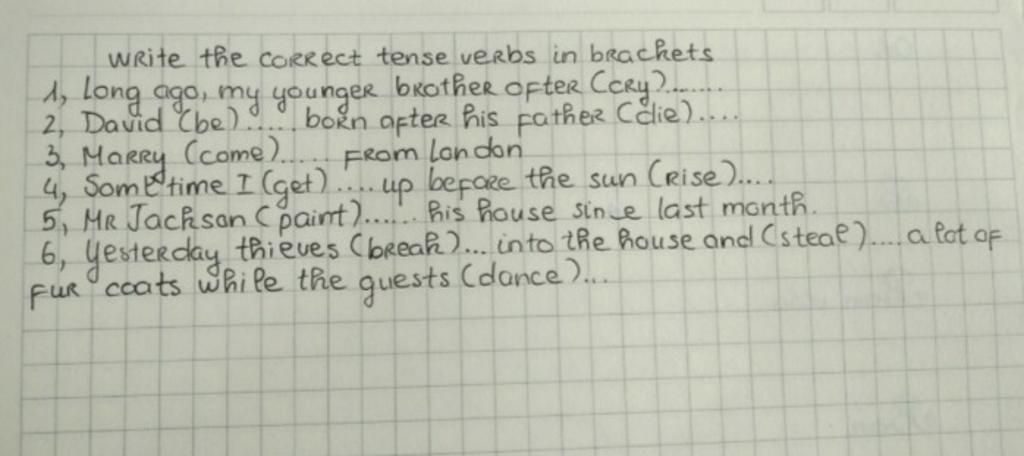 Write the correct tense verbs in brackets
1, Long ago, my younger brother ofter (cry).......
2, David (be)..... born after his father (die)....
3, Marry (come)..... from London
4, Sometime I (get)....up before the sun (rise)....
5, Mr Jackson (paint)...... his house since last month.
6, Yesterday thieves (break)... into the house and (steal).... a lot of
fur coats while the guests (dance)...